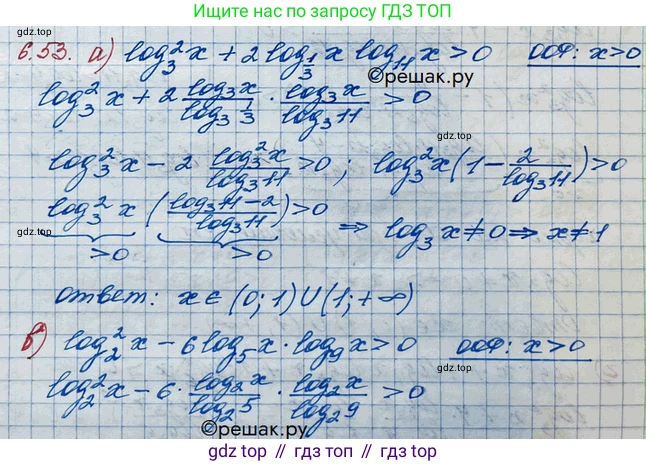 Ищите нас по запросу ГДЗ ТОП
6.53. а) log₃²x + 2 log_{1/3} x log₁₁ x > 0   ООФ: x > 0
©решак.ру
log₃²x + 2 (log₃x / log₃ 1/3) · (log₃x / log₃11) > 0
log₃²x − 2 (log₃²x / log₃11) > 0 ; log₃²x (1 − 2/log₃11) > 0
log₃²x ((log₃11 − 2) / log₃11) > 0 ⇒ log₃x ≠ 0 ⇒ x ≠ 1
>0 >0
ответ: x ∈ (0; 1) ∪ (1; + ∞)
в) log₂²x − 6 log₅x · log₉x > 0   ООФ: x > 0
log₂²x − 6 · (log₂x / log₂5) · (log₂x / log₂9) > 0
©решак.ру
gdz top // gdz top // gdz top